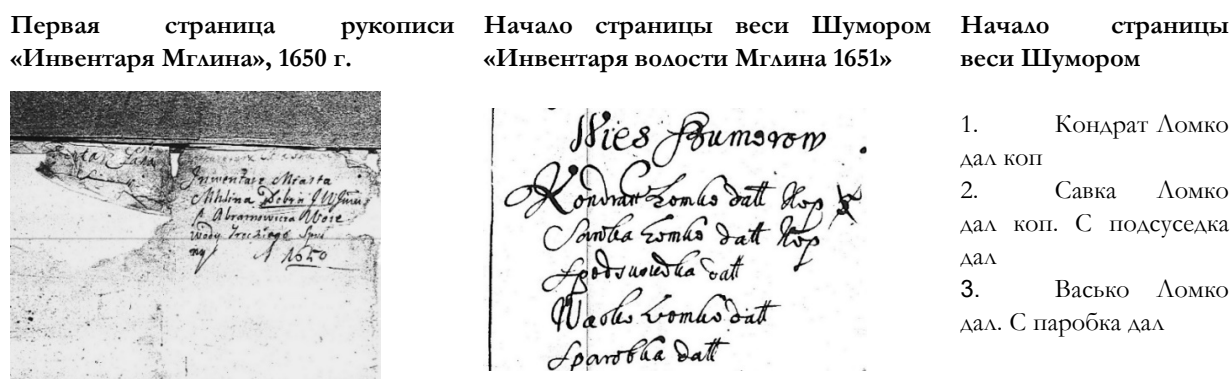 Первая страница рукописи
«Инвентаря Мглина», 1650 г.
Inwentarz Miasta
Mhlina Dobr
Abramowicza Woie
wody Trockiego
A 1650
Начало страницы веси Шумором
«Инвентаря волости Мглина 1651»
Wies Szumorow
Kondrat Lomko datt Kop
Sawka Lomko datt Kop
Spodsusiedka datt
Wasko Lomko datt
Sparobka datt
Начало страницы
веси Шумором
1. Кондрат Ломко
дал коп
2. Савка Ломко
дал коп. С подсуседка
дал
3. Васько Ломко
дал. С паробка дал